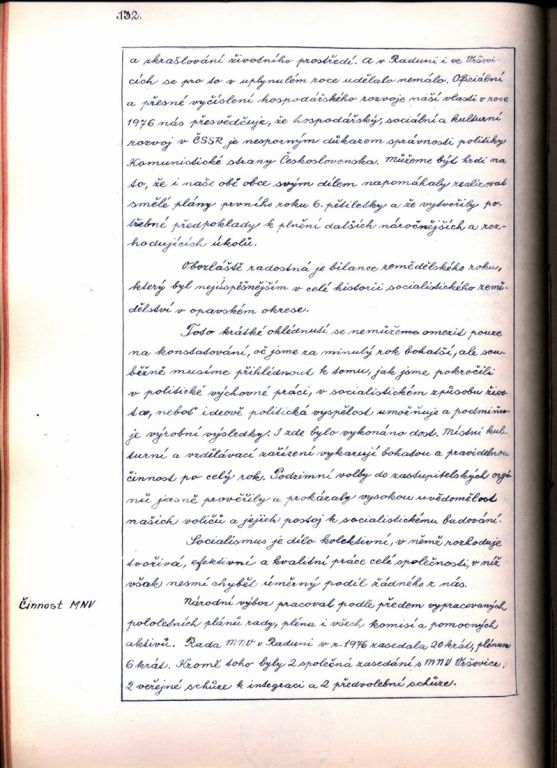 132.
a zkrašlování životního prostředí. A v Raduni i ve Vršovi-
cích se pro to v uplynulém roce udělalo nemálo. Oficiální
a přesné vyčíslení hospodářského rozvoje naší vlasti v roce
1976 nás přesvědčuje, že hospodářský, sociální a kulturní
rozvoj v ČSSR je nesporným důkazem správnosti politiky
Komunistické strany Československa. Můžeme být hrdi na
to, že i naše obě obce svým dílem napomáhaly realizovat
smělé plány prvního roku 6. pětiletky a že vytvořily po-
třebné předpoklady k plnění dalších náročnějších a roz-
hodujících úkolů.
Obzvláště radostná je bilance zemědělského roku,
který byl nejúspěšnějším v celé historii socialistického země-
dělství v opavském okrese.
Toto krátké ohlédnutí se nemůžeme omezit pouze
na konstatování, oč jsme za minulý rok bohatší, ale sou-
běžně musíme přihlédnout k tomu, jak jsme pokročili
v politické výchovné práci, v socialistickém způsobu živo-
ta, neboť ideově politická vyspělost umožňuje a podmiňu-
je výrobní výsledky. I zde bylo vykonáno dost. Místní kul-
turní a vzdělávací zařízení vykazují bohatou a pravidelnou
činnost po celý rok. Podzimní volby do zastupitelských orgá-
nů jasně prověřily a prokázaly vysokou uvědomělost
našich voličů a jejich postoj k socialistickému budování.
Socialismus je dílo kolektivní, v němž rozhoduje
tvořivá, efektivní a kvalitní práce celé společnosti, v níž
však nesmí chybět úměrný podíl žádného z nás.
Činnost MNV
Národní výbor pracoval podle předem vypracovaných
pololetních plánů rady, pléna i všech komisí a pomocných
aktivů. Rada MNV v Raduni v r. 1976 zasedala 20 krát, plénum
6 krát. Kromě toho byly 2 společná zasedání s MNV Vršovice,
2 veřejné schůze k integraci a 2 předvolební schůze.